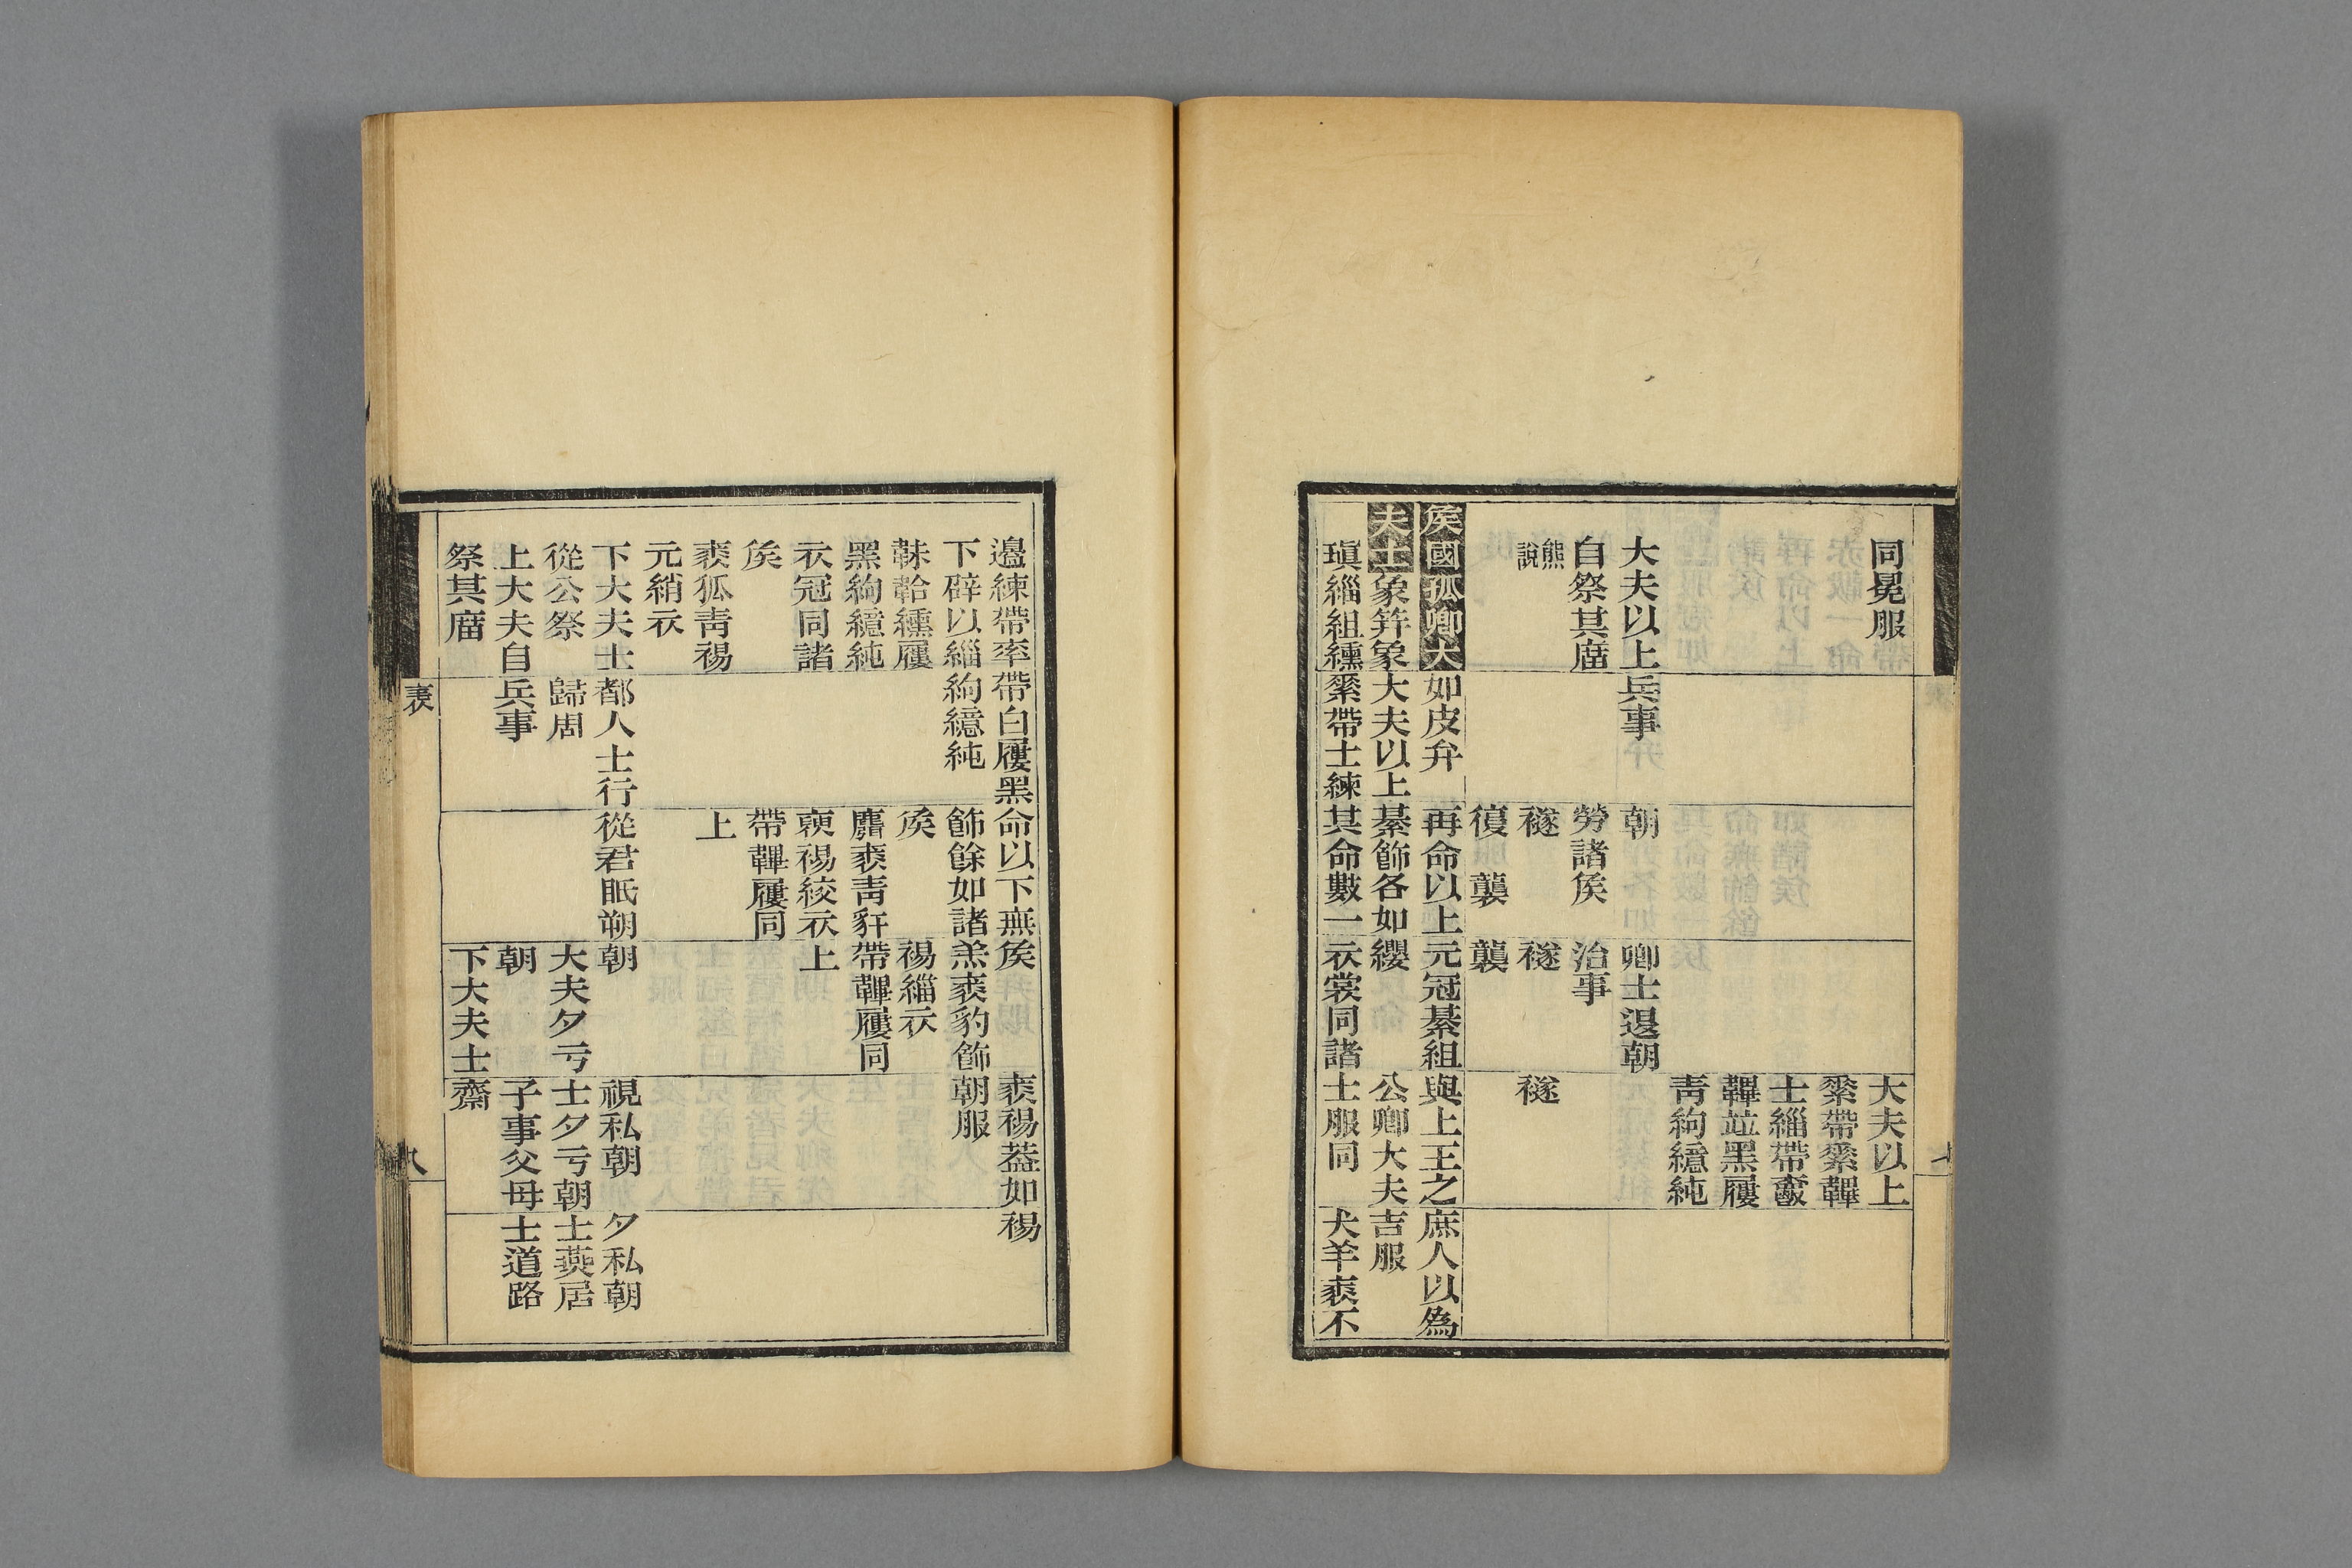 同冕服
大夫以上
自祭其庿
熊
說
侯國孤卿大
夫士象笄象
瑱緇組纁
兵事
如皮弁
大夫以上
素帶士練
朝
勞諸侯
襚
復 襲
再命以上
綦飾各如
其命數一
卿士退朝
治事
襚
襲
元冠綦組
纓
衣裳同諸
大夫以上
素帶素韠
士緇帶爵
韠竝黑屨
青絇繶純
襚
與上王之
公卿大夫
士服同
庶人以為
吉服
犬羊裘不
邊練帶率
下辟以緇
韎韐纁屨
黑絇繶純
衣冠同諸
侯
裘狐靑裼
元綃衣
下大夫士
從公祭
上大夫自
祭其庿
帶白屨黑
絇繶純
都人士行
歸周
兵事
命以下無
飾餘如諸
侯
麛裘靑豻
褎裼絞衣
帶韠屨同
上
從君眡朔
侯
羔裘豹飾
裼緇衣
帶韠屨同
上
朝
大夫夕亏
朝
下大夫士
裘裼葢如
朝服
視私朝
士夕亏朝
子事父母
齋
裼
夕私朝
士燕居
士道路
表
八